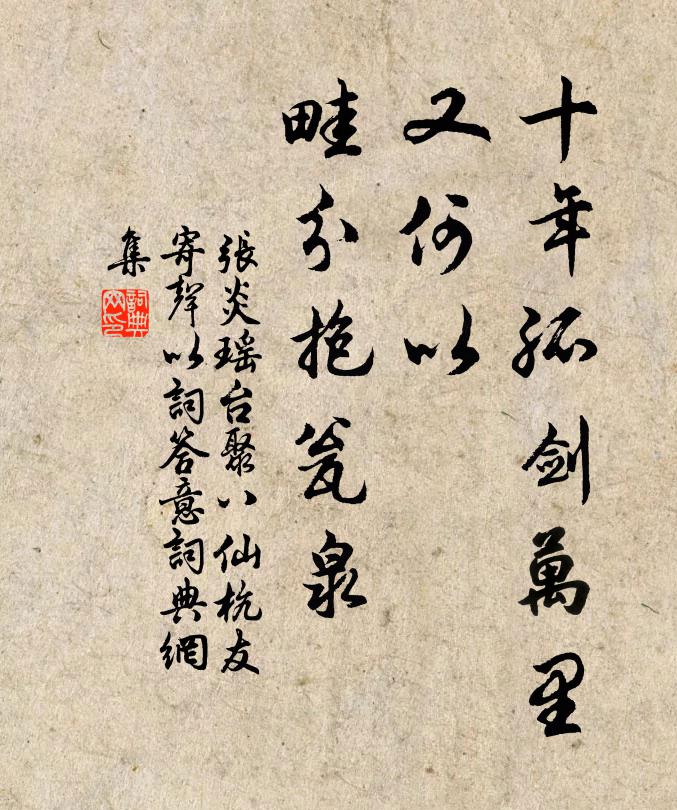 十年孤剑萬里
又何以
畦分抱瓮泉
張炎瑶台聚八仙杭友
寄聲以詞答意詞典網
集
詞典網印